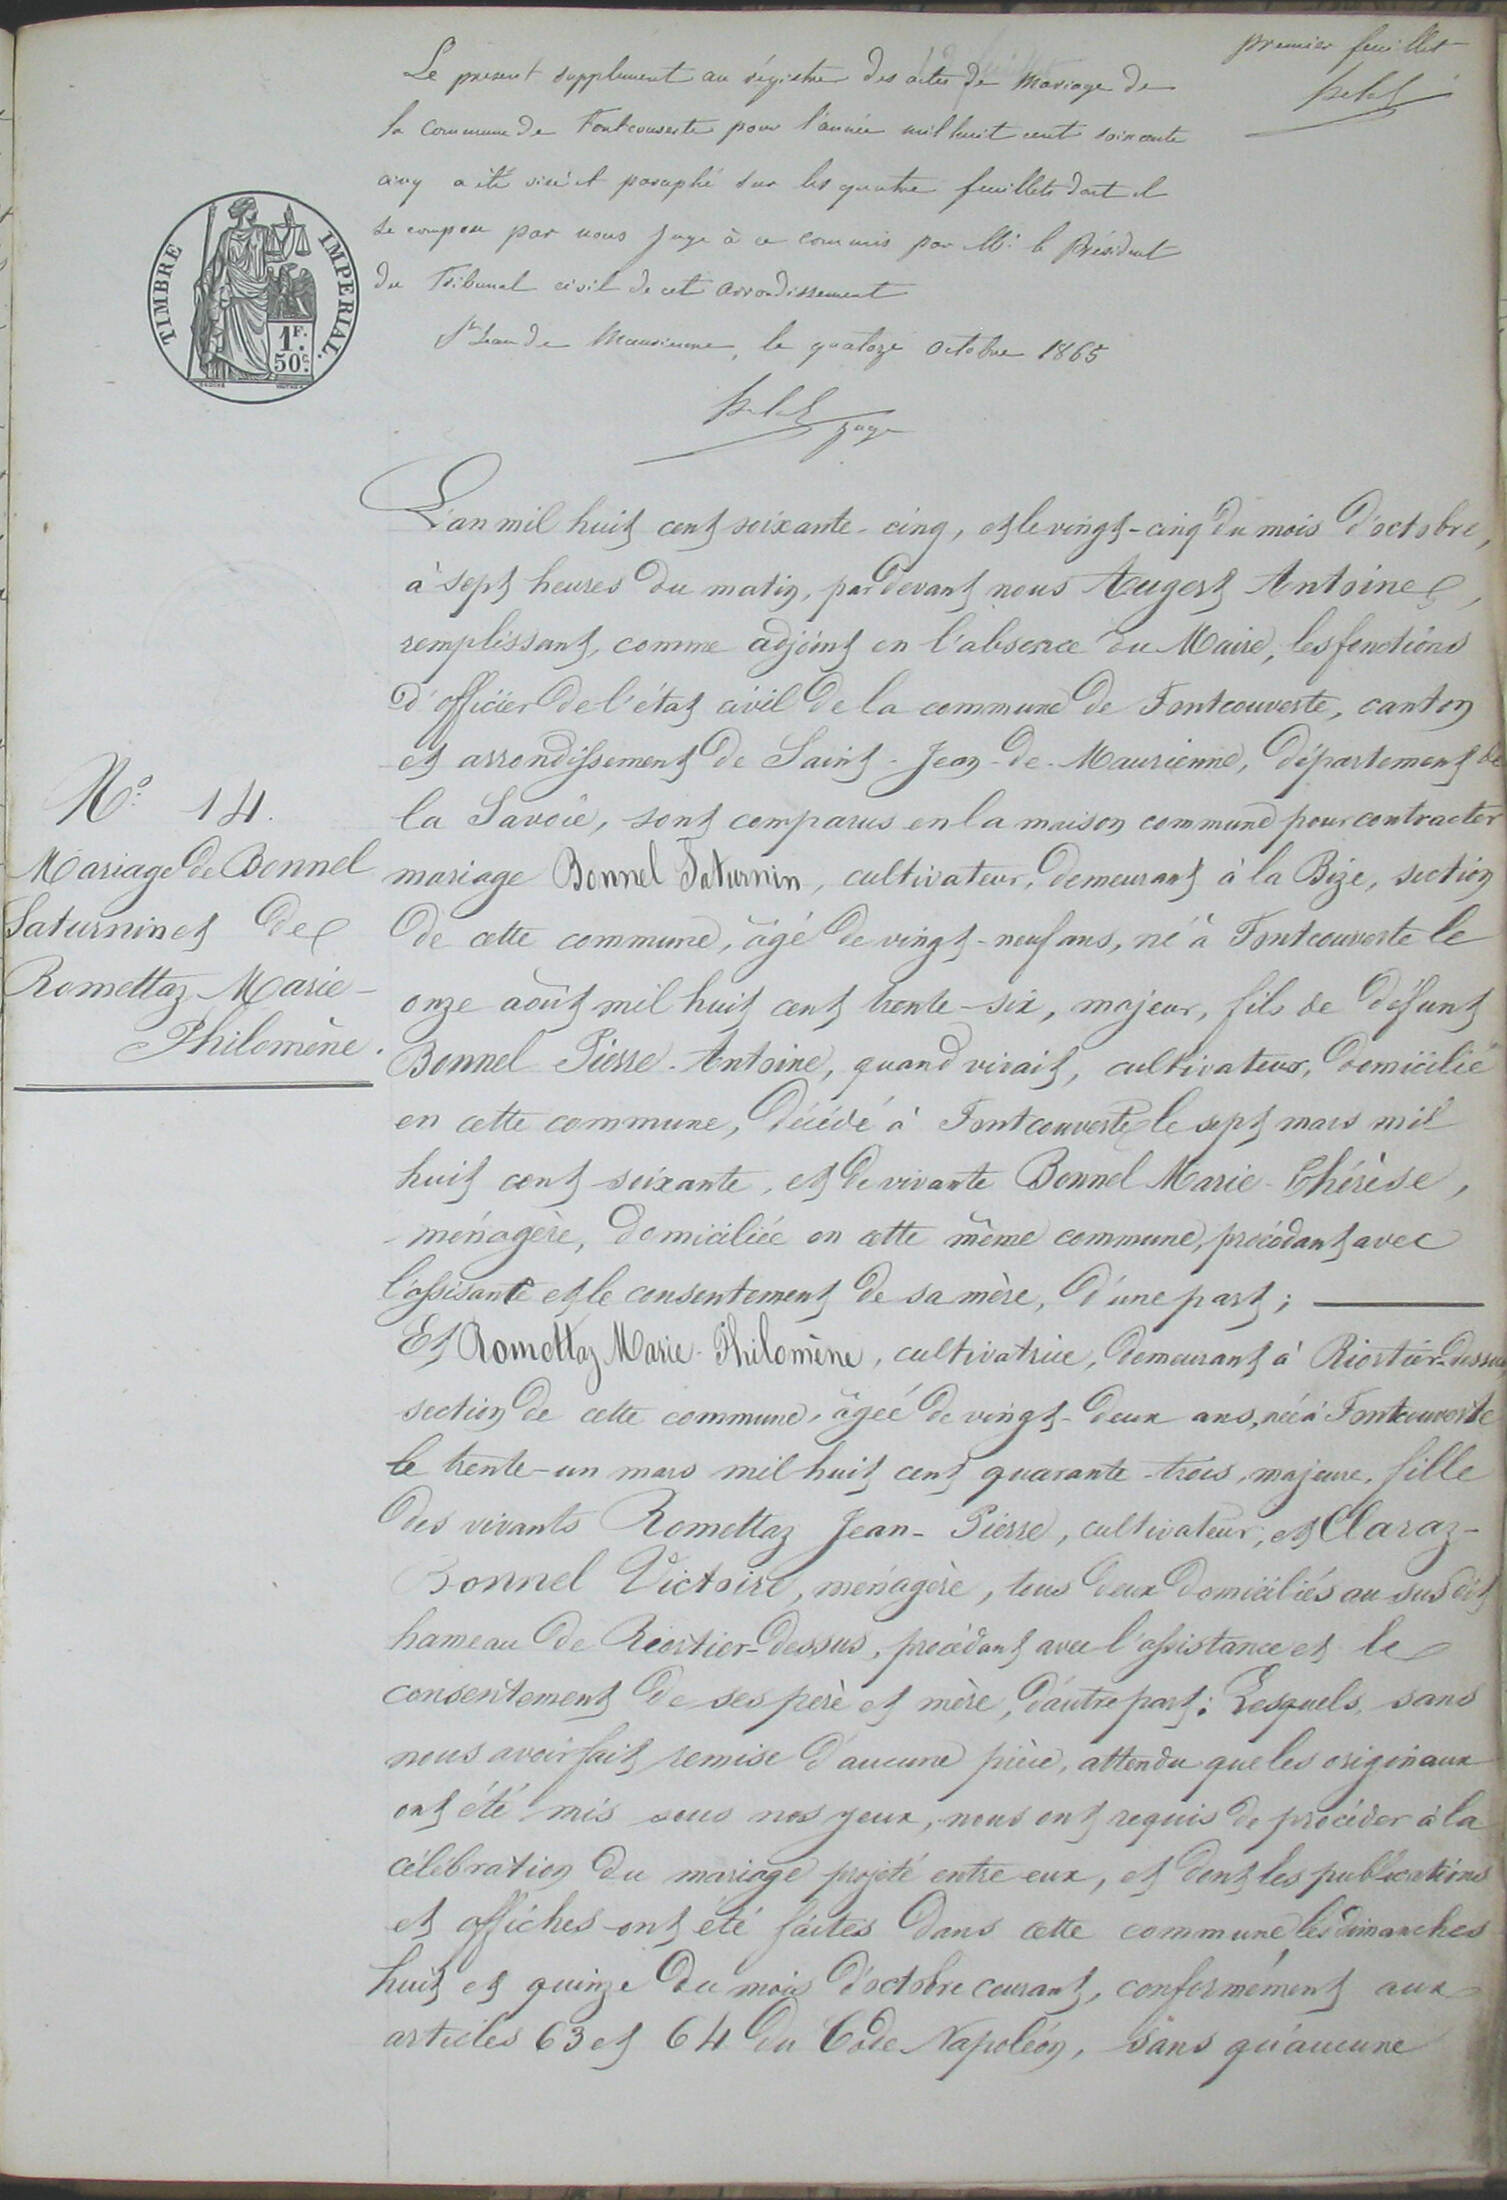 premier feuillet
Le présent supplément au régistre des actes de Mariage de
la Commune de Fontcouverte pour l'année mil huit cent soixante
cinq a été visé et paraphé sur les quatre feuillets dont il
se compose par nous Juge à ce commis par Mr. le Président
du Tribunal civil de cet arrondissement
St Jean de Maurienne, le quatorze octobre 1865
juge
TIMBRE IMPERIAL.
1F.
50c.
L'an mil huit cent soixante-cinq, et le vingt-cinq du mois d'octobre,
à sept heures du matin, pardevant nous Augert Antoine,
remplissant, comme adjoint en l'absence du Maire, les fonctions
d'officier de l'état civil de la commune de Fontcouverte, canton
et arrondissement de Saint-Jean-de-Maurienne, département de
la Savoie, sont comparus en la maison commune pour contracter
mariage Bonnel Saturnin, cultivateur, demeurant à la Bize, section
de cette commune, âgé de vingt-neuf ans, né à Fontcouverte le
onze août mil huit cent trente-six, majeur, fils de défunt
Bonnel Pierre-Antoine, quand vivait, cultivateur, domicilié
en cette commune, décédé à Fontcouverte le sept mars mil
huit cent soixante, et de vivante Bonnel Marie-Thérèse,
ménagère, domiciliée en cette même commune, procédant avec
l'assisante et le consentement de sa mère, d'une part;
Et Romettaz Marie-Philomène, cultivatrice, demeurant à Riortier-dessus
section de cette commune, âgée de vingt-deux ans, née à Fontcouverte
le trente-un mars mil huit cent quarante-trois, majeure, fille
des vivants Romettaz Jean-Pierre, cultivateur, et Claraz-
Bonnel Victoire, ménagère, tous deux domiciliés au susdit
hameau de Riortier-dessus, procédant avec l'assistance et le
consentement de ses père et mère, d'autre part: Lesquels, sans
nous avoir fait remise d'aucune pièce, attendu que les originaux
ont été mis sous nos yeux, nous ont requis de procéder à la
célébration du mariage projeté entre eux, et dont les publications
et affiches ont été faites dans cette commune les dimanches
huit et quinze du mois d'octobre courant, conformément aux
articles 63 et 64 du Code Napoléon, sans qu'aucune
No. 14.
Mariage de Bonnel
Saturnin et de
Romettaz Marie-
Philomène.